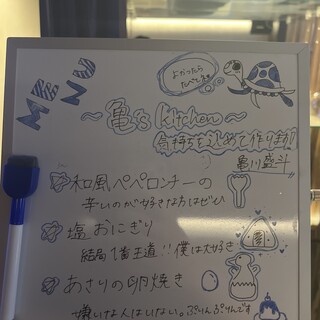 MENU
よかったら
たべてネ
~亀's kitchen~
気持ちをこめて作ります!
亀川盛斗
和風ペペロンチーの
辛いのが好きな方はぜひ
塩おにぎり
結局1番王道!!僕は大好き
あさりの卵焼き
嫌いな人はいない。ぷりんぷりんです